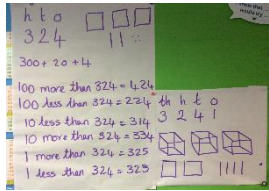 h t o
3 2 4
300 + 20 + 4
100 more than 324 = 424
100 less than 324 = 224
10 less than 324 = 314
10 more than 324 = 334
1 more than 324 = 325
1 less than 324 = 323
th h t o
3 2 4 1